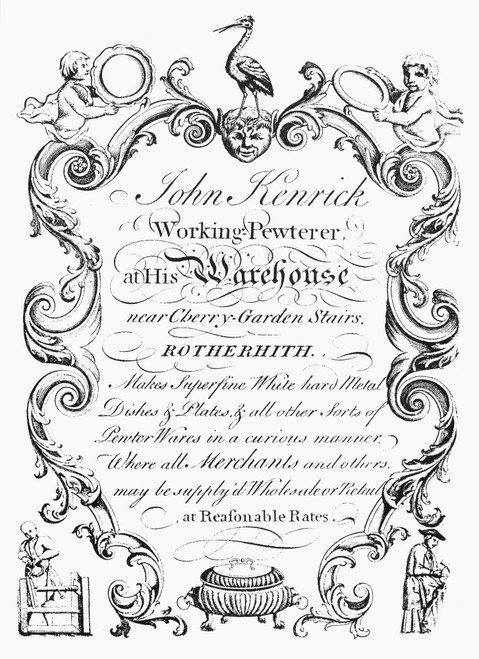 John Kenrick
Working-Pewterer,
at His Warehouse
near Cherry-Garden Stairs,
ROTHERHITH.
Makes Superfine White hard Metal
Dishes & Plates, & all other Sorts of
Pewter Wares in a curious manner,
Where all Merchants and others,
may be supply'd Wholesale or Retail
at Reasonable Rates.